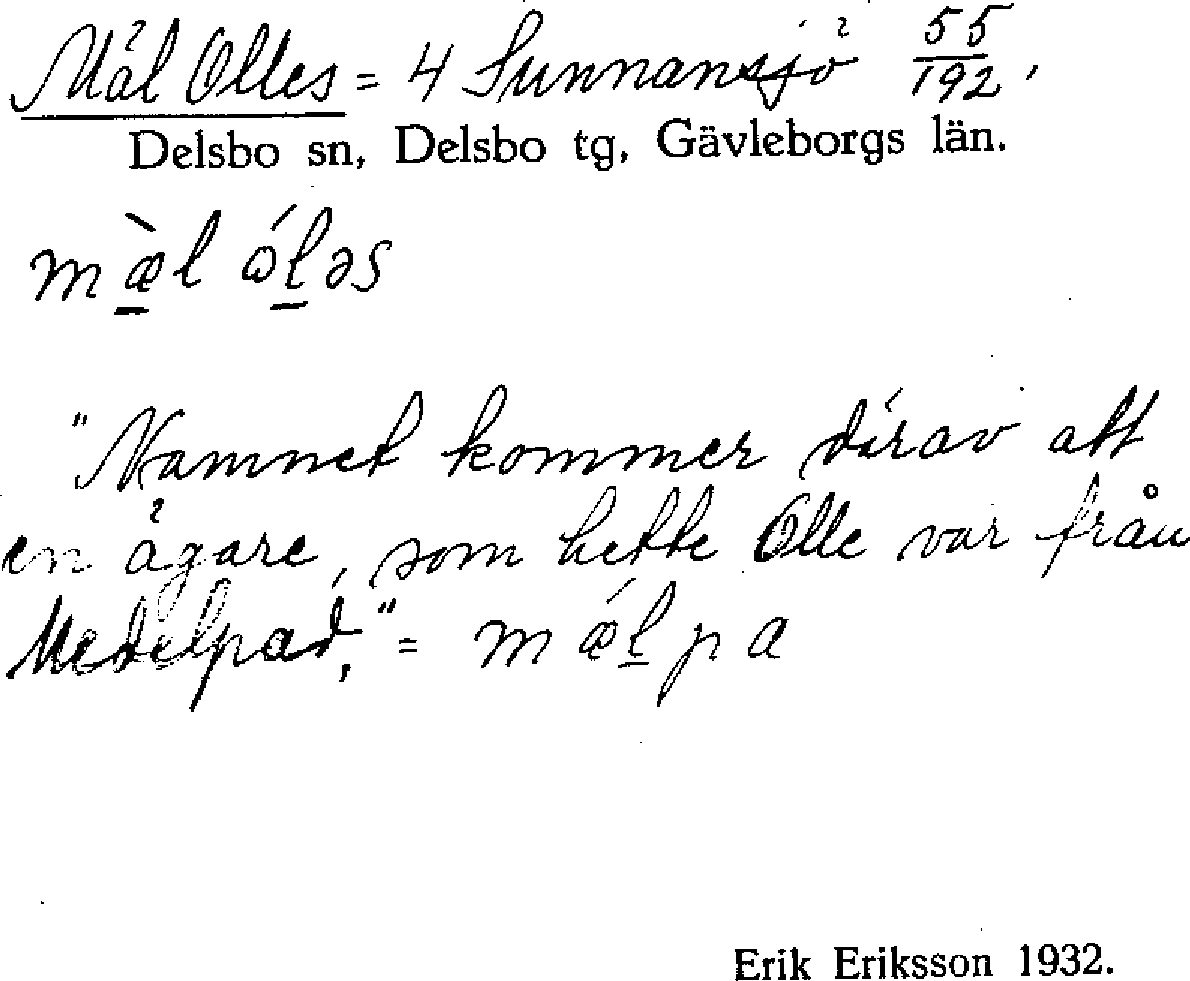 Mäl Olles = 4 Sunnansjö 55/192.
Delsbo sn, Delsbo tg, Gävleborgs län.
mæ̠̀l ɷ́l̠əs
"Namnet kommer därav att
en ägare, som hette Olle var från
Medelpad," = mǽl̠pa
Erik Eriksson 1932.